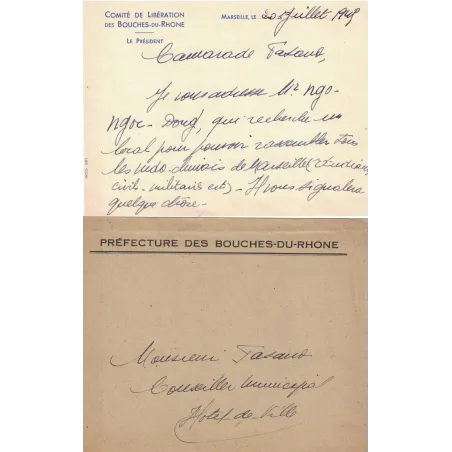 COMITÉ DE LIBÉRATION
DES BOUCHES-DU-RHONE
LE PRÉSIDENT
MARSEILLE, LE 20 Juillet 1945
Camarade Tasano,
Je vous adresse Mr Ngo-
Ngoc-Dong, qui recherche un
local pour pouvoir rassembler tous
les indo-chinois de Marseille (étudiants
civil-militaires etc)- Il vous signalera
quelque chose-
PRÉFECTURE DES BOUCHES-DU-RHONE
Monsieur Tasano
Conseiller Municipal
Hotel-de-Ville